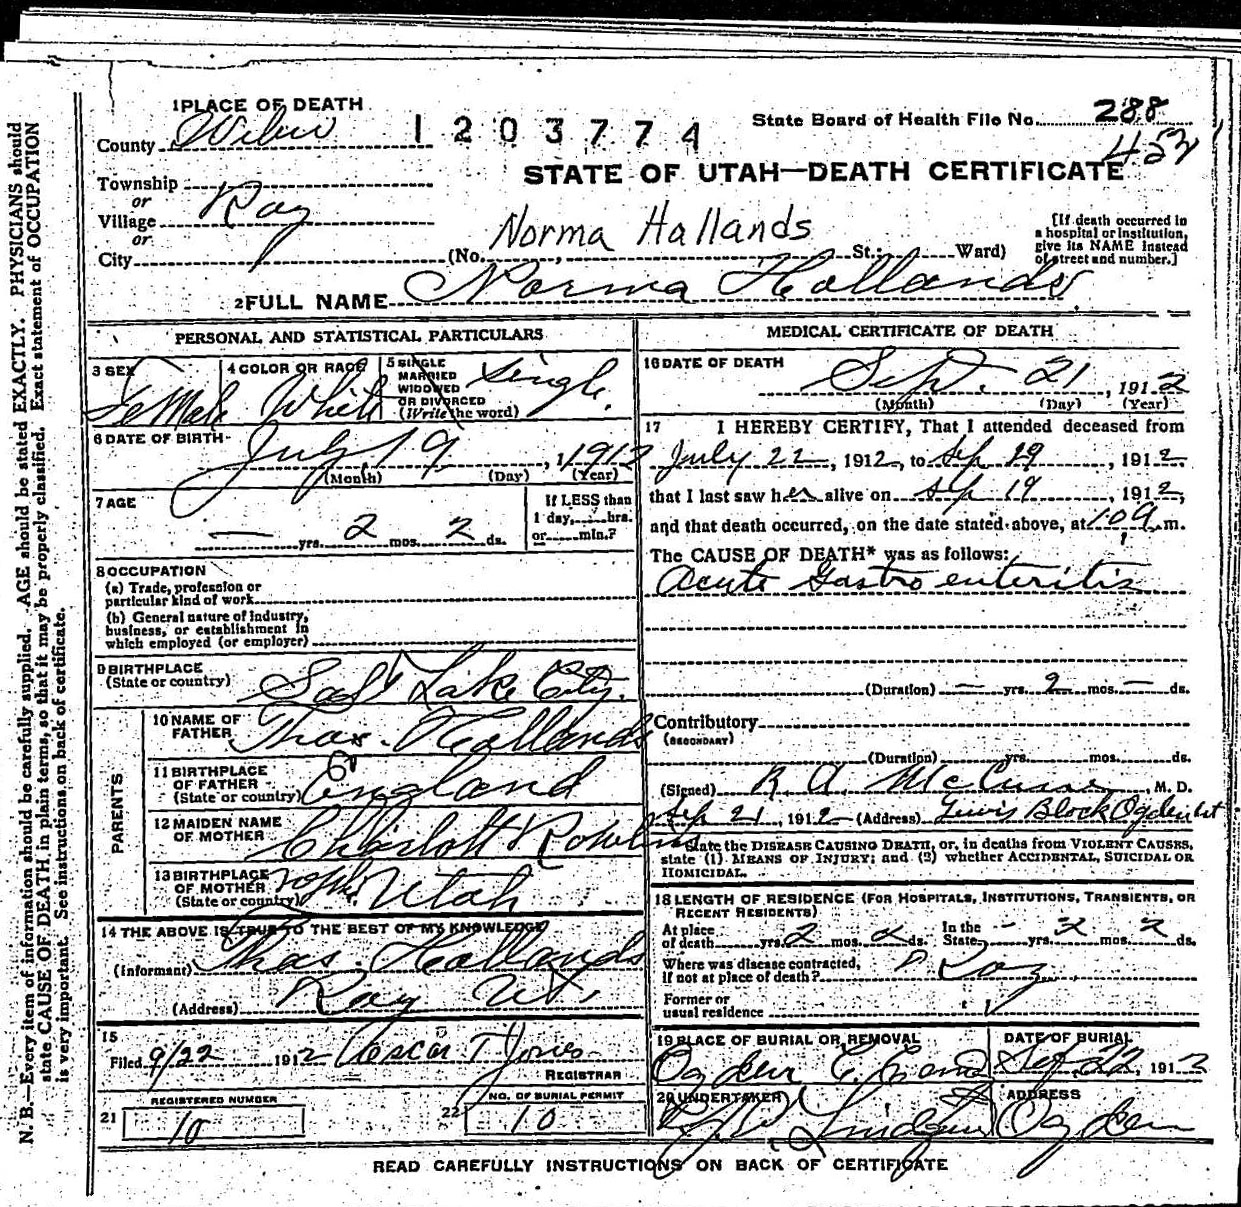 1 PLACE OF DEATH
County
1203774
State Board of Health File No. 288
STATE OF UTAH—DEATH CERTIFICATE
Township
or
Village Roy
or
City
(No. St.; Ward)
Norma Hallands
[If death occurred in
a hospital or institution,
give its NAME instead
of street and number.]
2 FULL NAME Norma Hollands
PERSONAL AND STATISTICAL PARTICULARS
3 SEX Female
4 COLOR OR RACE White
5 SINGLE
MARRIED
WIDOWED
OR DIVORCED
(Write the word)
Single.
6 DATE OF BIRTH July 19, 1912
(Month) (Day) (Year)
7 AGE
— yrs. 2 mos. 2 ds.
If LESS than
1 day, hrs.
or min.?
8 OCCUPATION
(a) Trade, profession or
particular kind of work
(b) General nature of industry,
business, or establishment in
which employed (or employer)
9 BIRTHPLACE
(State or country) Salt Lake City.
PARENTS
10 NAME OF
FATHER Thos. Hollands
11 BIRTHPLACE
OF FATHER
(State or country) England
12 MAIDEN NAME
OF MOTHER
13 BIRTHPLACE
OF MOTHER
(State or country) Utah
14 THE ABOVE IS TRUE TO THE BEST OF MY KNOWLEDGE
(Informant) Thos. Hollands
(Address) Roy Ut.
15
Filed 9/22 1912 Oscar T Jones
REGISTRAR
21 REGISTERED NUMBER
10
22 NO. OF BURIAL PERMIT
10
MEDICAL CERTIFICATE OF DEATH
16 DATE OF DEATH
Sept. 21, 1912
(Month) (Day) (Year)
17 I HEREBY CERTIFY, That I attended deceased from
July 22, 1912, to Sep 29, 1912.
that I last saw her alive on Sep 19, 1912,
and that death occurred, on the date stated above, at m.
The CAUSE OF DEATH* was as follows:
Acute Gastro enteritis
(Duration) — yrs. 2 mos. — ds.
Contributory
(SECONDARY)
(Duration) yrs. mos. ds.
(Signed) R. A. M. D.
Sep 21, 1912 (Address) Lewis Block Ogden Ut
State the DISEASE CAUSING DEATH, or, in deaths from VIOLENT CAUSES,
state (1) MEANS OF INJURY; and (2) whether ACCIDENTAL, SUICIDAL OR
HOMICIDAL.
18 LENGTH OF RESIDENCE (FOR HOSPITALS, INSTITUTIONS, TRANSIENTS, OR
RECENT RESIDENTS)
At place
of death yrs. 2 mos. 2 ds.
In the
State — yrs. 2 mos. 2 ds.
Where was disease contracted,
if not at place of death? Roy
Former or
usual residence
19 PLACE OF BURIAL OR REMOVAL
Ogden
DATE OF BURIAL
Sept. 22, 1912
20 UNDERTAKER
ADDRESS
Ogden
READ CAREFULLY INSTRUCTIONS ON BACK OF CERTIFICATE
N. B.—Every item of information should be carefully supplied. AGE should be stated EXACTLY. PHYSICIANS should
state CAUSE OF DEATH in plain terms, so that it may be properly classified. Exact statement of OCCUPATION
is very important. See instructions on back of certificate.